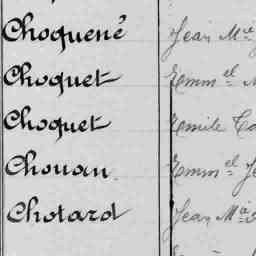 Choquené Jean Mie
Choquet Emm el
Choquet Emile
Chouan Emm el
Chotard Jean Mie